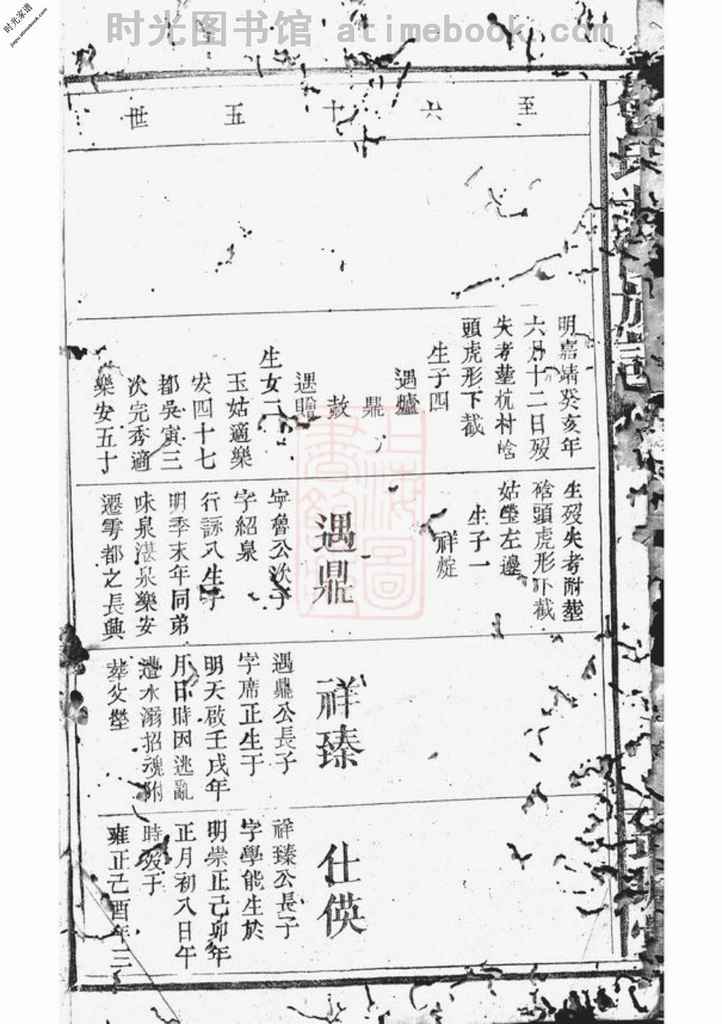 时光图书馆 atimebook.com
时光家谱
jiapu.atimebook.com
至六十五世
明嘉靖癸亥年
六月十二日歿
失考塟杭村
頭虎形下截
生子四
遇爐
鼎
遇
生女二
玉姑適樂
安四十七
都吳寅三
次完秀適
樂安五十
生歿失考附塟
頭虎形下截
姑塋左邊
生子一
祥烶
遇鼎
寧魯公次子
字紹泉
行詠八生于
明季末年同弟
味泉湛泉樂安
遷雩都之長興
祥臻
遇鼎公長子
字席正生于
明天啟壬戌年
月日時因逃亂
水溺招魂附
葬父塋
仕僙
祥臻公長子
字學能生於
明崇正己卯年
正月初八日午
時歿于
雍正己酉年三